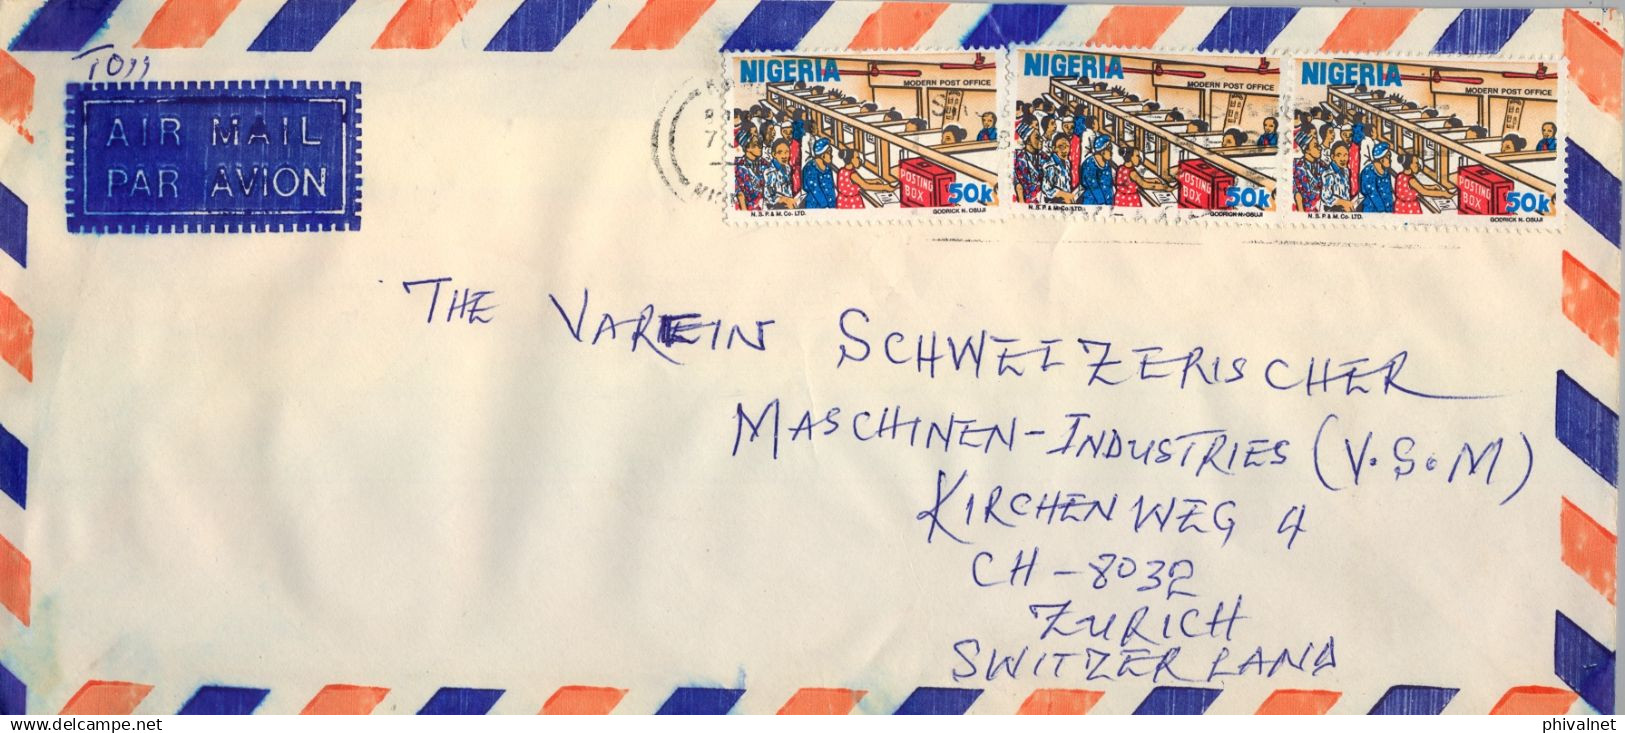 TO,,
AIR MAIL
PAR AVION
NIGERIA
MODERN POST OFFICE
POSTING BOX
50k
N. S. P. & M. Co. LTD.
GODRICK N. OSUJI
NIGERIA
MODERN POST OFFICE
POSTING BOX
50k
N. S. P. & M. Co. LTD.
GODRICK N. OSUJI
NIGERIA
MODERN POST OFFICE
POSTING BOX
50k
N. S. P. & M. Co. LTD.
GODRICK N. OSUJI
THE VAREIN SCHWEIZERISCHER
MASCHINEN-INDUSTRIES (V.S.M)
KIRCHENWEG 4
CH-8032
ZURICH
SWITZERLAND
phivalnet